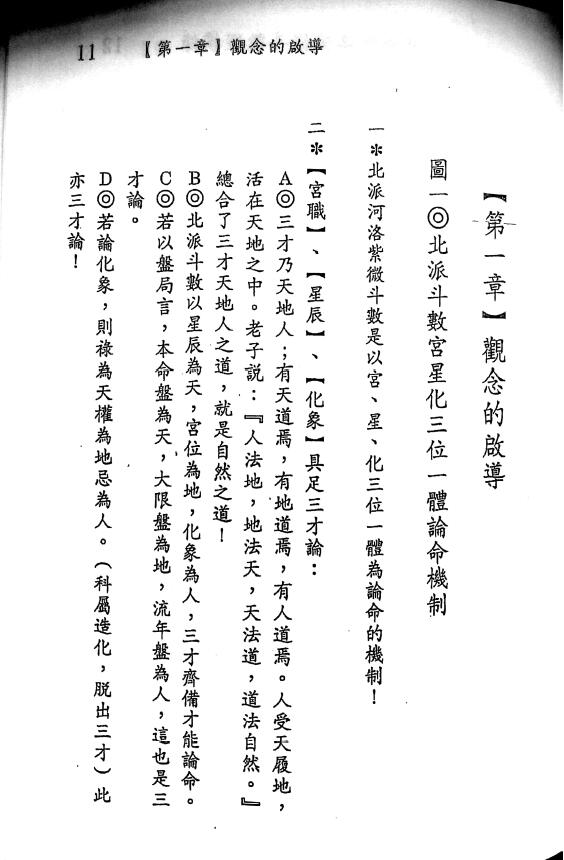 11 【第一章】觀念的啟導
【第一章】觀念的啟導
圖一◎北派斗數宮星化三位一體論命機制
一＊北派河洛紫微斗數是以宮、星、化三位一體為論命的機制！
二＊【宮職】、【星辰】、【化象】具足三才論：
A◎三才乃天地人；有天道焉，有地道焉，有人道焉。人受天履地，
活在天地之中。老子説：『人法地，地法天，天法道，道法自然。』
總合了三才天地人之道，就是自然之道！
B◎北派斗數以星辰為天，宮位為地，化象為人，三才齊備才能論命。
C◎若以盤局言，本命盤為天，大限盤為地，流年盤為人，這也是三
才論。
D◎若論化象，則祿為天權為地忌為人。（科屬造化，脫出三才）此
亦三才論！